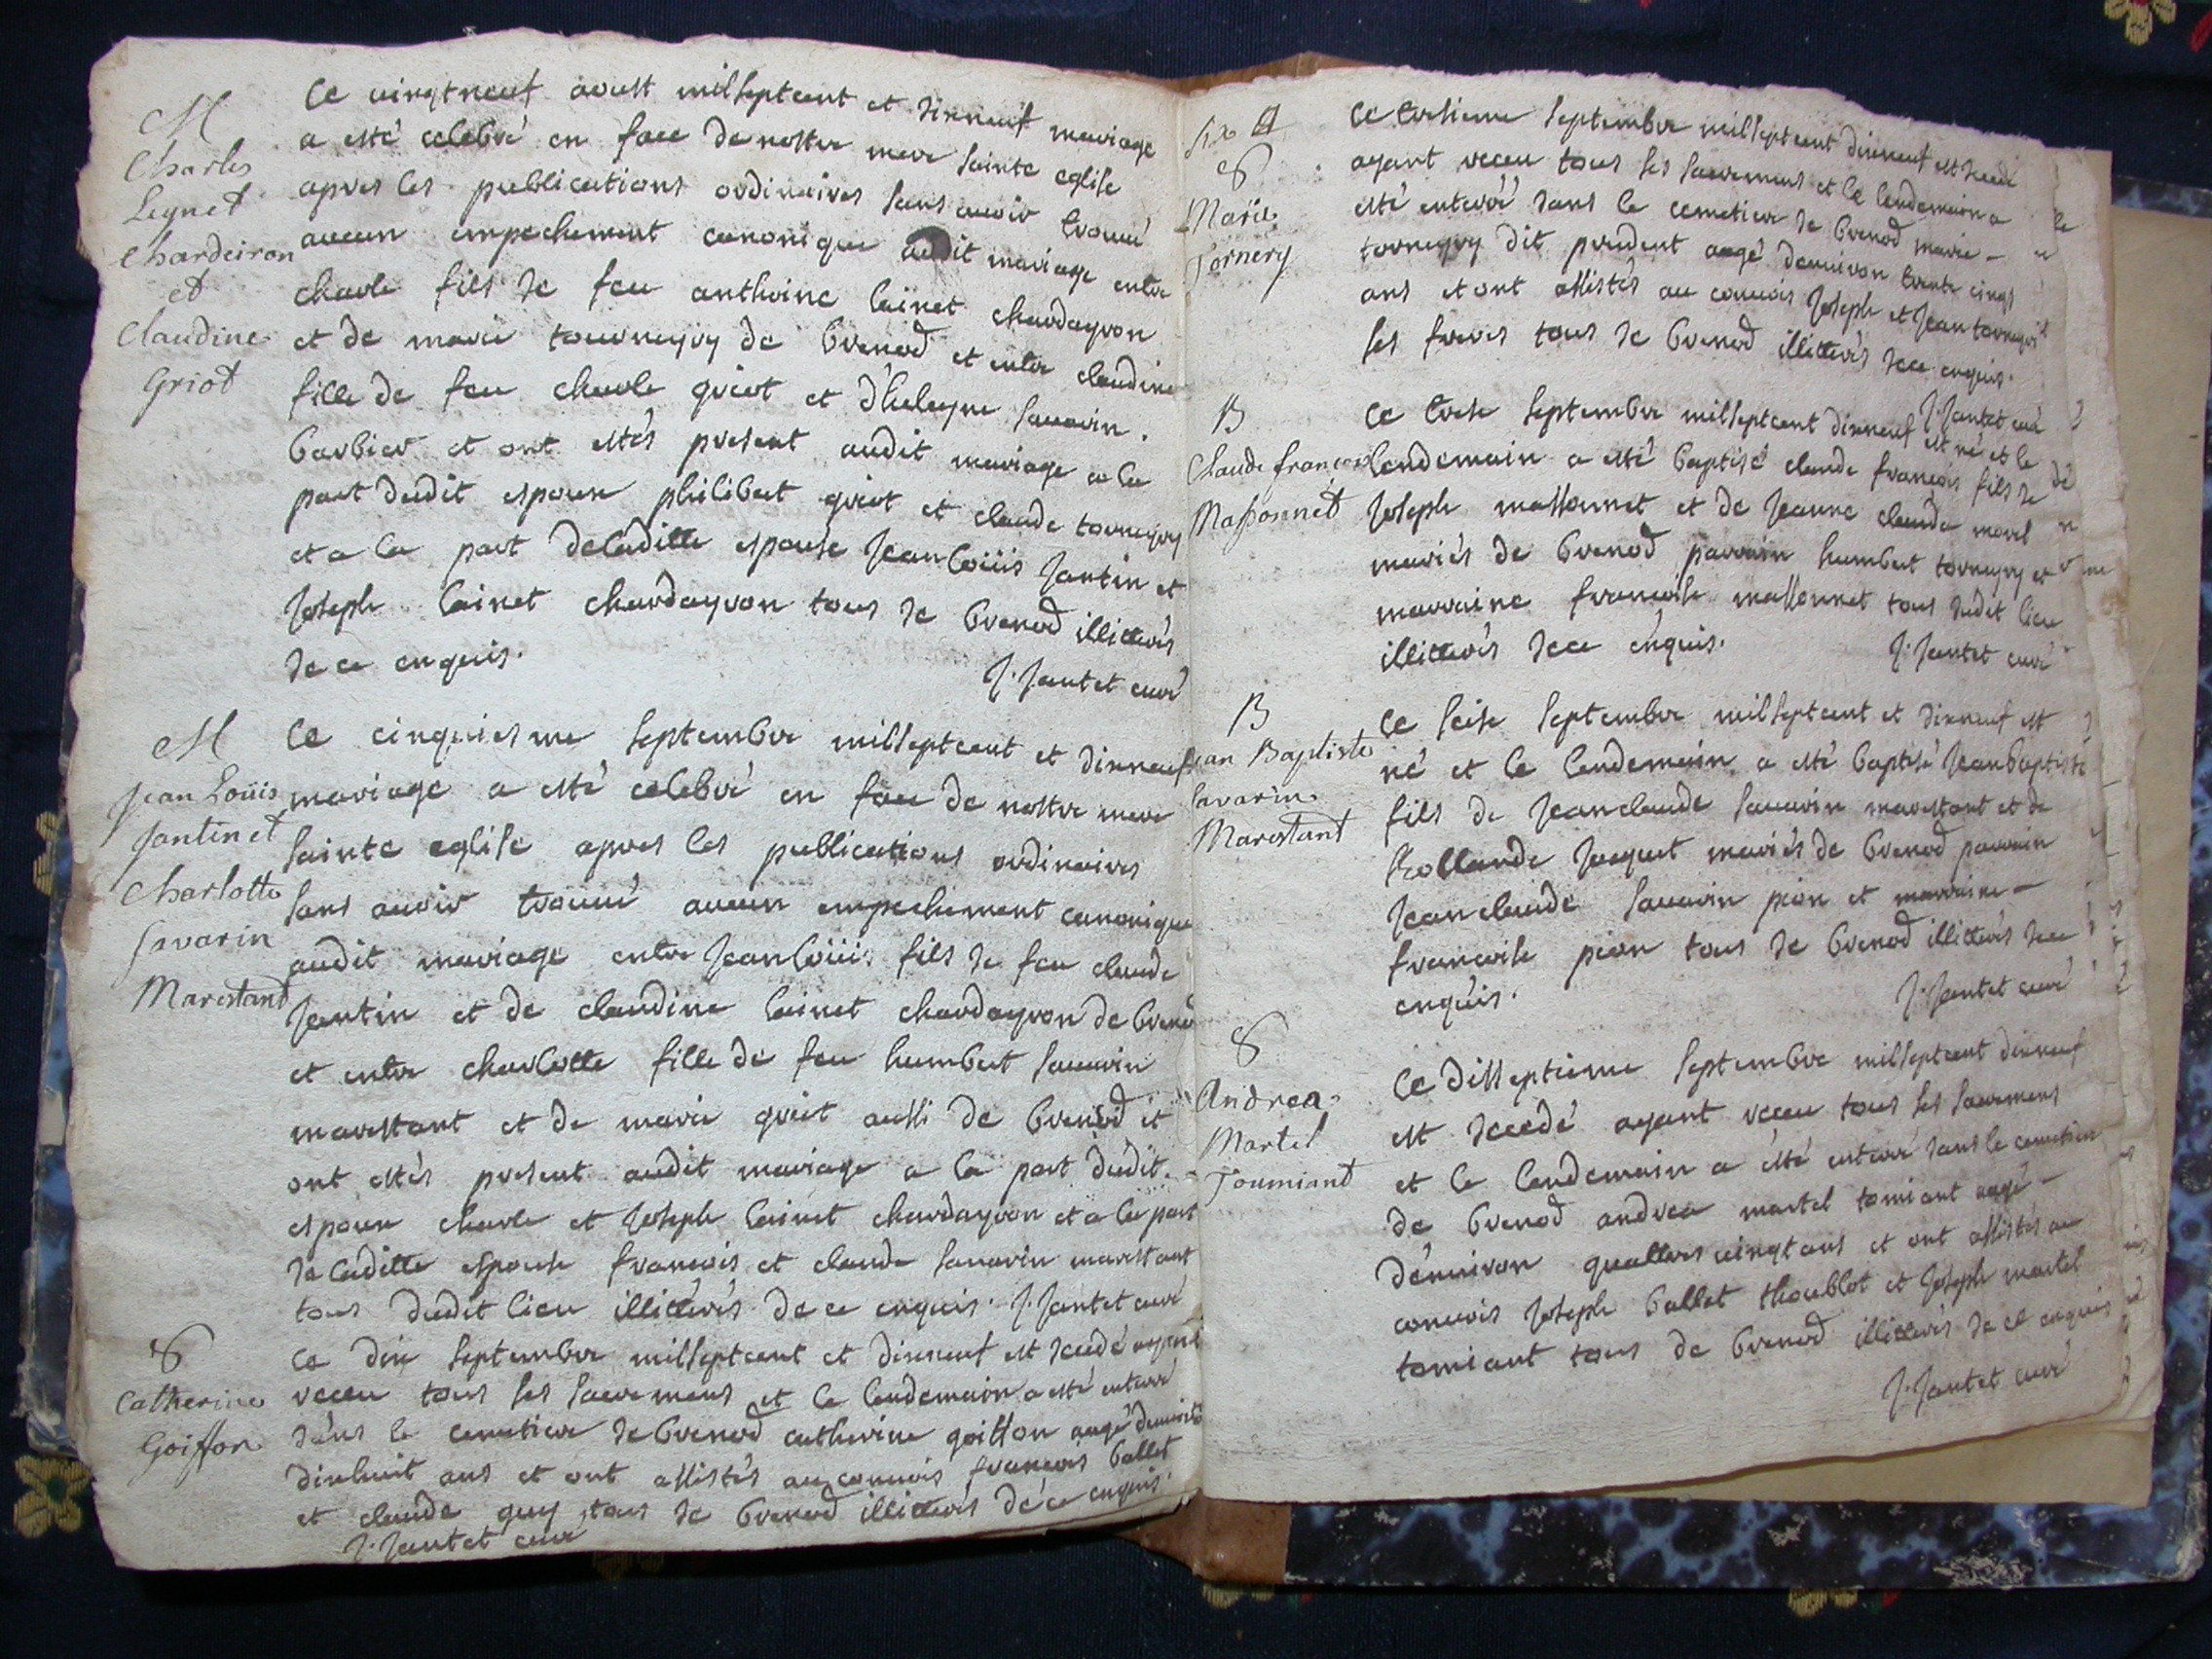 M
Charles
Leynet
Chardeiron
et
Claudine
Griot
Ce vingtneuf aoust milseptcent et dixneuf mariage
a esté celebré en face de nostre mere sainte eglise
apres les publications ordinaires sans avoir trouvé
aucun empechement canonique audit mariage entre
charle fils de feu anthoine lainet chardayron
et de marie tourneyry de brenod et entre claudine
fille de feu charle griot et d'huleyne savarin
barbier et ont estés present audit mariage a la
part dudit espoux philibert griot et claude torneyry
et a la part de laditte espouse Jean loüis Jantin et
Joseph lainet chardayron tous de brenod illitterés
de ce enquis.
J. Jantet curé
M
Jean Loüis
Jantin et
Charlotte
Savarin
Marestant
Ce cinquiesme septembre milseptcent et dixneuf
mariage a esté celebré en face de nostre mere
sainte eglise apres les publications ordinaires
sans avoir trouvé aucun empechement canonique
audit mariage entre Jean loüis fils de feu claude
Jantin et de claudine lainet chardayron de brenod
et entre charlotte fille de feu humbert savarin
marestant et de marie griot aussi de brenod et
ont estés present audit mariage a la part dudit
espoux charle et Joseph lainet chardayron et a la part
de laditte espouse francois et claude savarin marestant
tous dudit lieu illitterés de ce enquis. J. Jantet curé
S
Catherine
Goiffon
Ce dix septembre milseptcent et dixneuf est decedé ayant
receu tous ses sacremens et le lendemain a esté enterré
dans le cemetiere de brenod catherine goiffon augé denviron
dixhuit ans et ont assistés au convois francois ballet
et claude guy tous de brenod illitterés de ce enquis.
J. Jantet curé
S
Marie
Tornery
Ce tresieme septembre milseptcent dixneuf est decedé
ayant receu tous ses sacremens et le lendemain a
esté enterré dans le cemetiere de brenod marie
torneyry dit prudent augé denviron trente cinqs
ans et ont assistés au convois Joseph et Jean torneyry
ses freres tous de brenod illitterés de ce enquis.
J. Jantet curé
B
Claude françois
Massonnet
Ce trese septembre milseptcent dixneuf est né et le
lendemain a esté baptisé claude francois fils de
Joseph massonnet et de Jeanne claude morel
mariés de brenod parrain humbert torneyry et
marraine francoise massonnet tous dudit lieu
illitterés de ce enquis.
J. Jantet curé
B
Jean Baptiste
Savarin
Marestant
Ce seise septembre milseptcent et dixneuf est
né et le lendemain a esté baptisé Jean baptiste
fils de Jean claude savarin marestant et de
Rollande Jaquet mariés de brenod parrain
Jean claude savarin pion et marraine
francoise pion tous de brenod illitterés de ce
enquis.
J. Jantet curé
S
Andrea
Martel
Toumiant
Ce disseptieme septembre milseptcent dixneuf
est decedé ayant receu tous ses sacremens
et le lendemain a esté enterré dans le cemetiere
de brenod andrea martel tomiant augé
d'environ quattres vingt ans et ont assistés au
convois Joseph ballet thoublot et Joseph martel
tomiant tous de brenod illitterés de ce enquis
J. Jantet curé